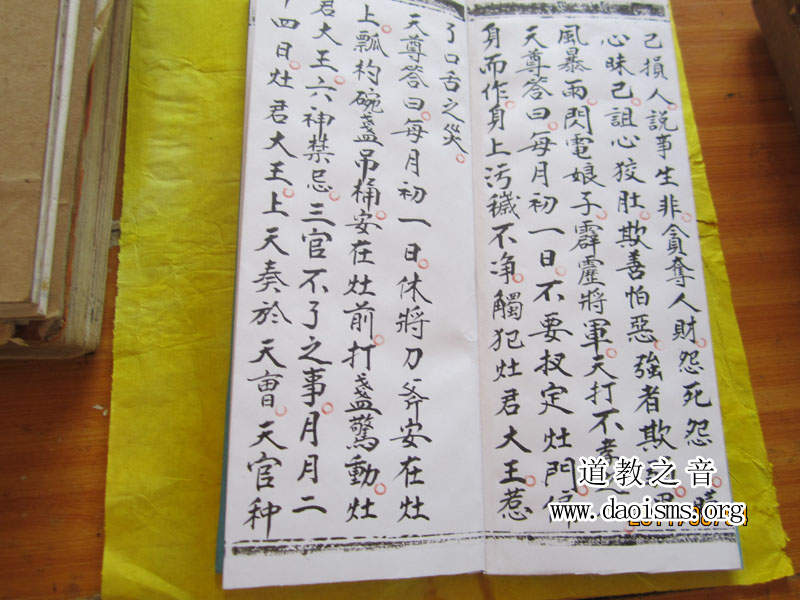 己損人說事生非貪奪人財怨死怨
心昧己詛心狡肚欺善怕惡強者欺
風暴雨閃電娘子霹靂將軍天打不孝
天尊答曰每月初一日不要扠定灶門停
身而作身上污穢不净觸犯灶君大王惹
了口舌之災
天尊答曰每月初一日休將刀斧安在灶
上瓢杓碗盞吊桶安在灶前打盞驚動灶
君大王六神禁忌三官不了之事月月二
十四日灶君大王上天奏於天曹天官种
道教之音
www.daoisms.org